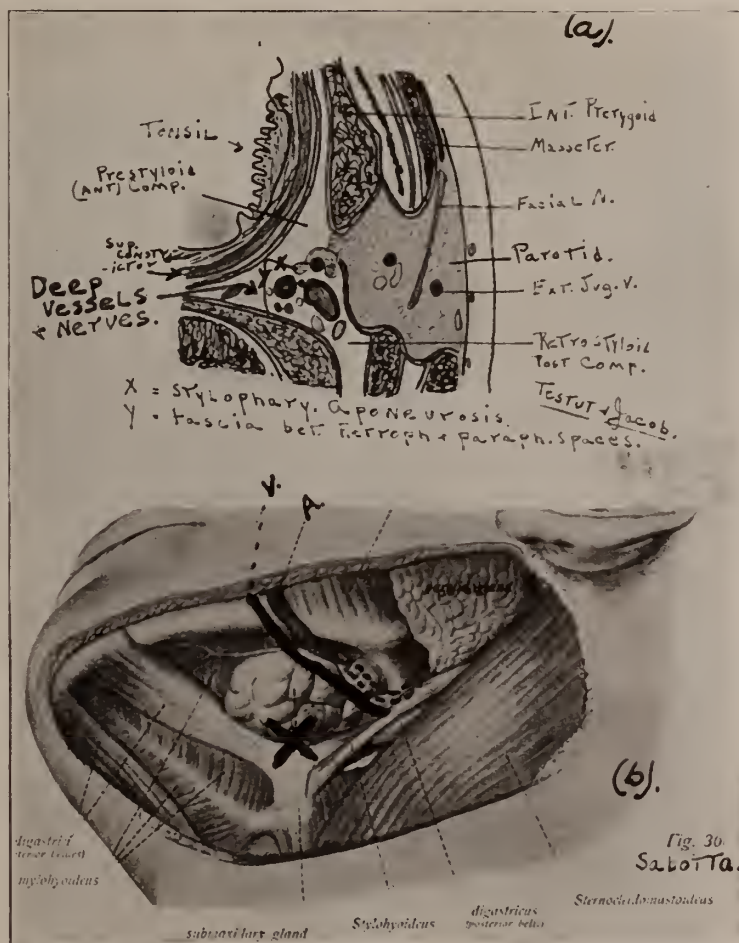 (a).
TONSIL
PRESTYLOID
(ANT) COMP.
SUP.
CONSTR-
ICTOR
DEEP
VESSELS
& NERVES.
INT. PTERYGOID
MASSETER.
FACIAL N.
PAROTID.
EXT. JUG. V.
RETROSTYLOID
POST COMP.
TESTUT & Jacob.
X = STYLOPHARY. APONEUROSIS.
Y = FASCIA BET. RETROPH & PARAPH. SPACES.
V.
A.
X
(b).
digastrici
mylohyoideus
submaxillary gland
Stylohyoideus
digastricus
(posterior belly)
Sternocleidomastoideus
Fig. 30
Sabotta.